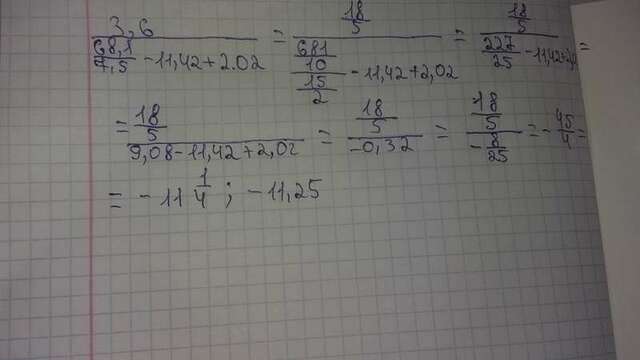 3,6 / (68,1/7,5 - 11,42 + 2.02) = (18/5) / ((681/10)/(15/2) - 11,42 + 2,02) = (18/5) / (227/25 - 11,42 + 2,0 =
= (18/5) / (9,08 - 11,42 + 2,02) = (18/5) / (-0,32) = (18/5) / (-8/25) = - 45/4 =
= - 11 1/4 ; - 11,25